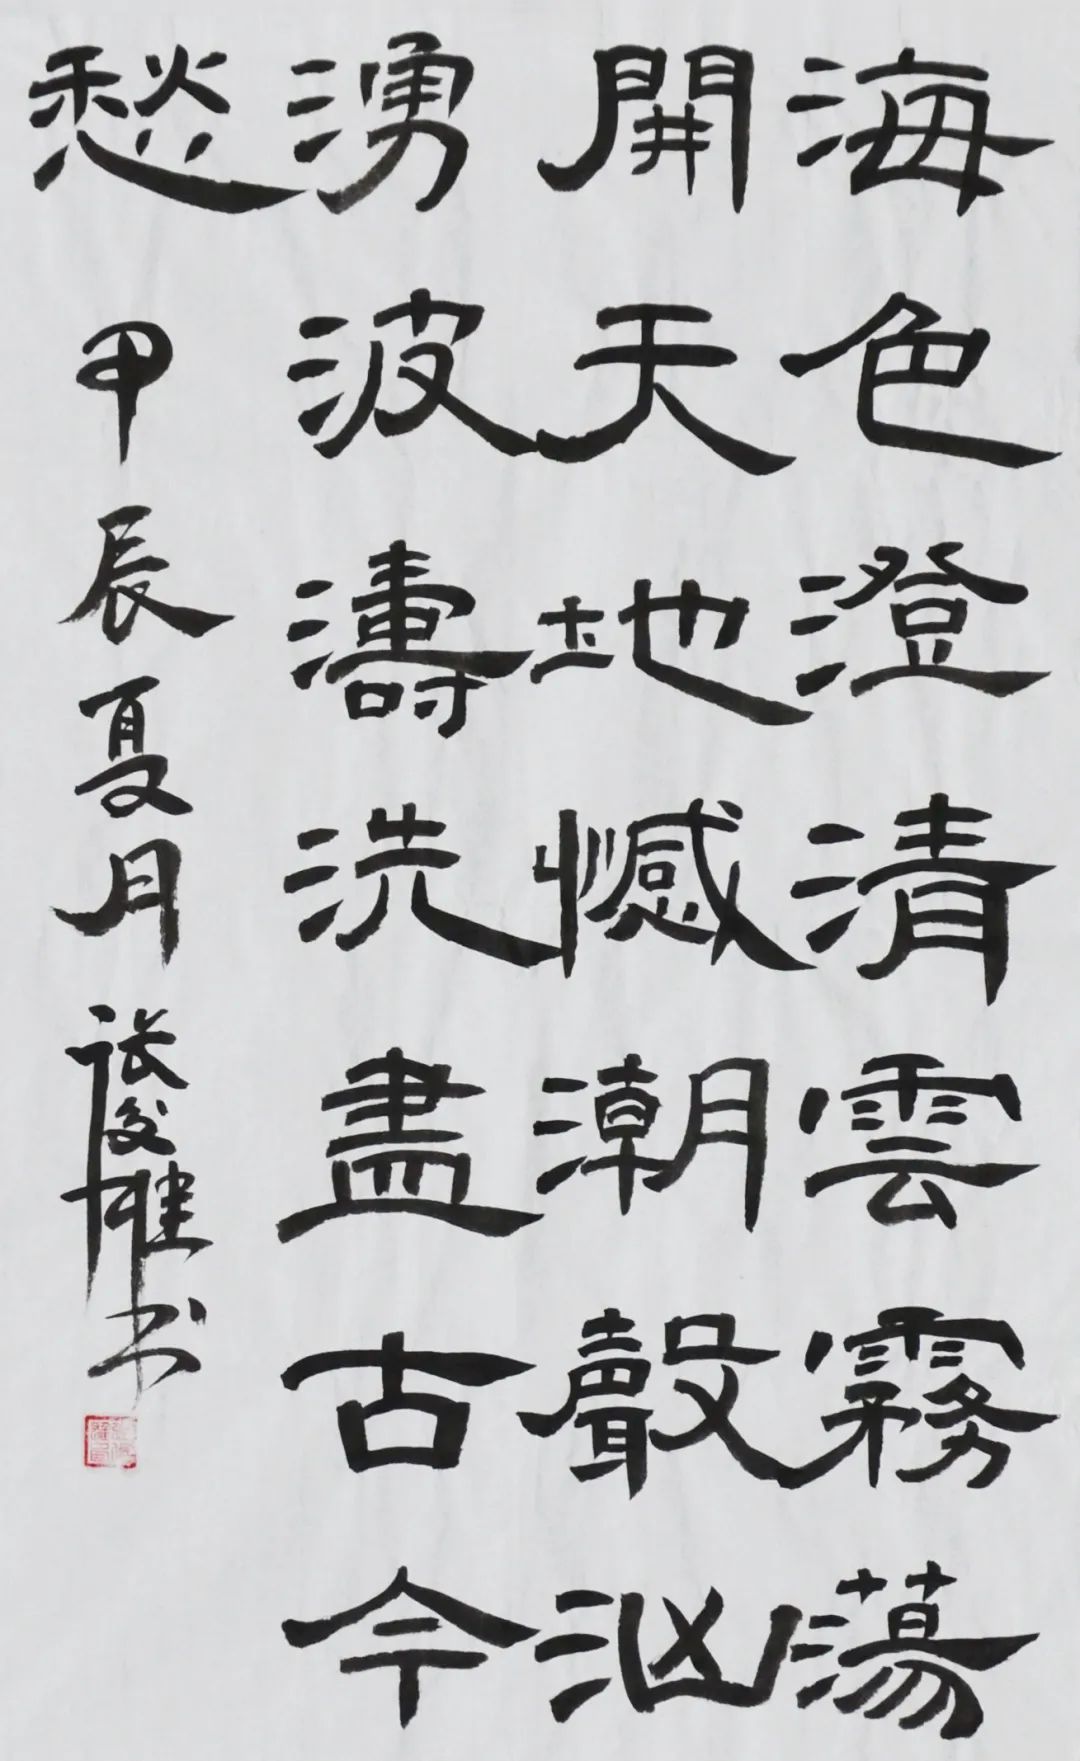 海色澄清雲霧蕩
開天地憾潮聲汹
湧波濤洗盡古今
愁 甲辰夏月 张俊雄书